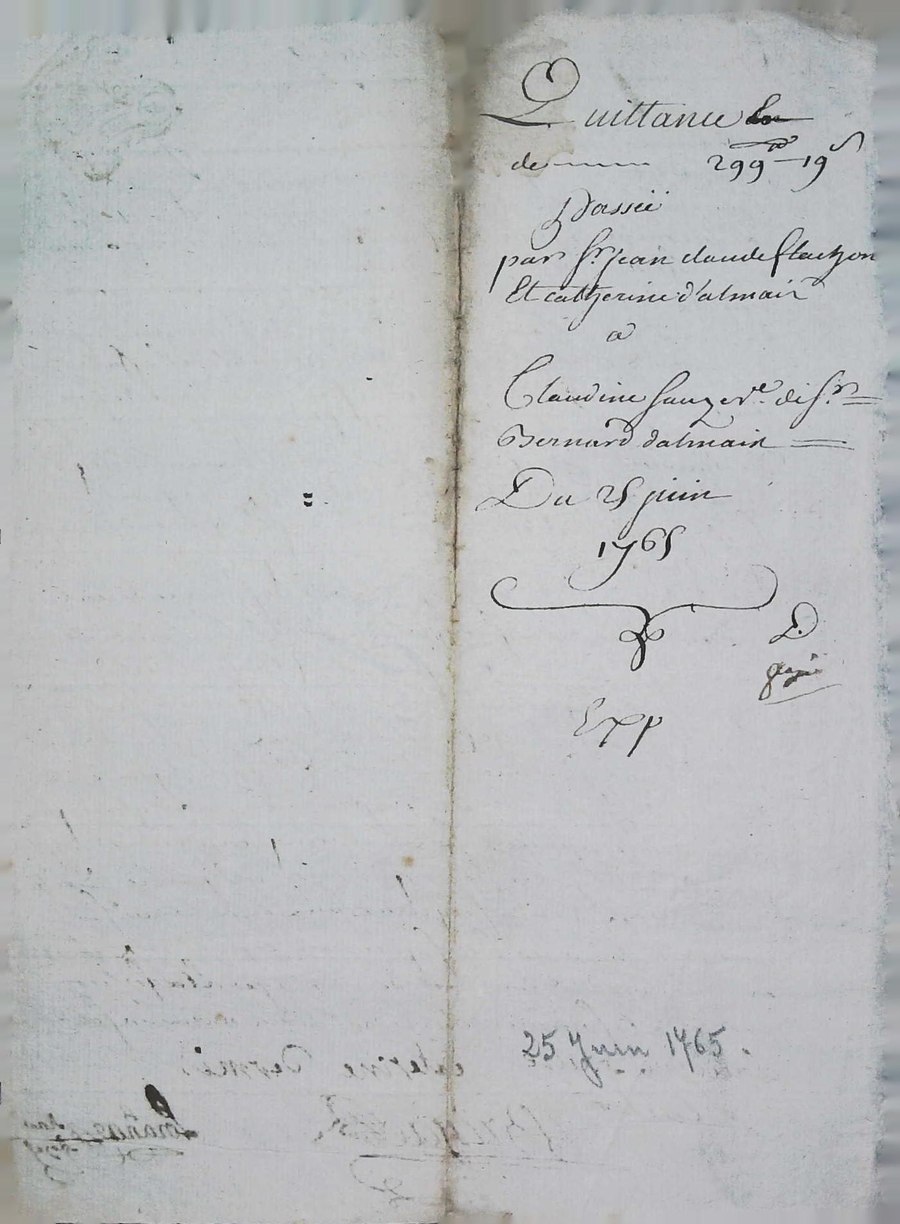 Quittance
de 299# 19s
Passée
par Sr jean claude flachon
Et catherine d'almais
a
Claudine sauze ve. de Sr
Bernard dalmais
Du 25 juin
1765
D
Exp
25 Juin 1765.